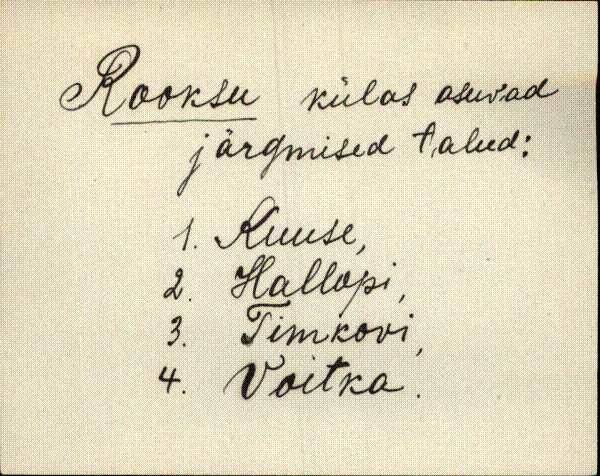 Rooksu külas asuvad
järgmised talud:
1. Kuuse,
2. Hallopi,
3. Timkovi,
4. Voitka.